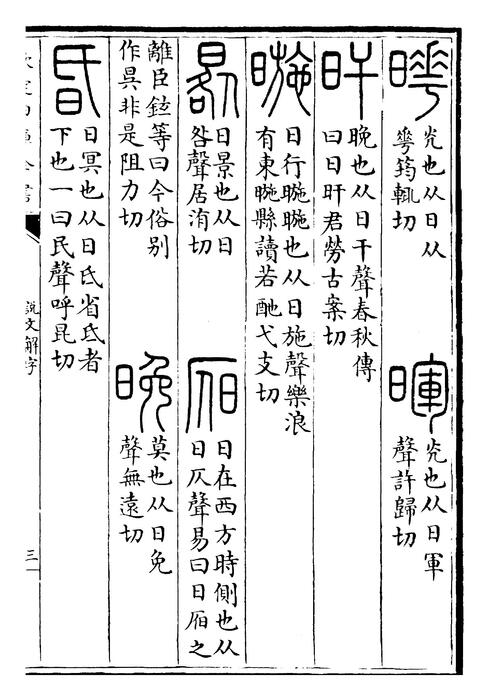 㬢
灮也从日从
𠌶筠輒切
暉
灮也从日軍
聲許歸切
旰
晚也从日干聲春秋傳
曰日旰君勞古案切
暆
日行暆暆也从日施聲樂浪
有東暆縣讀若酏弋支切
晷
日景也从日
咎聲居洧切
𣅳
日在西方時側也从
日仄聲易曰日𣅳之
離臣鉉等曰今俗别
作昗非是阻力切
晚
莫也从日免
聲無遠切
昏
日冥也从日氐省氐者
下也一曰民聲呼昆切
說文解字
三